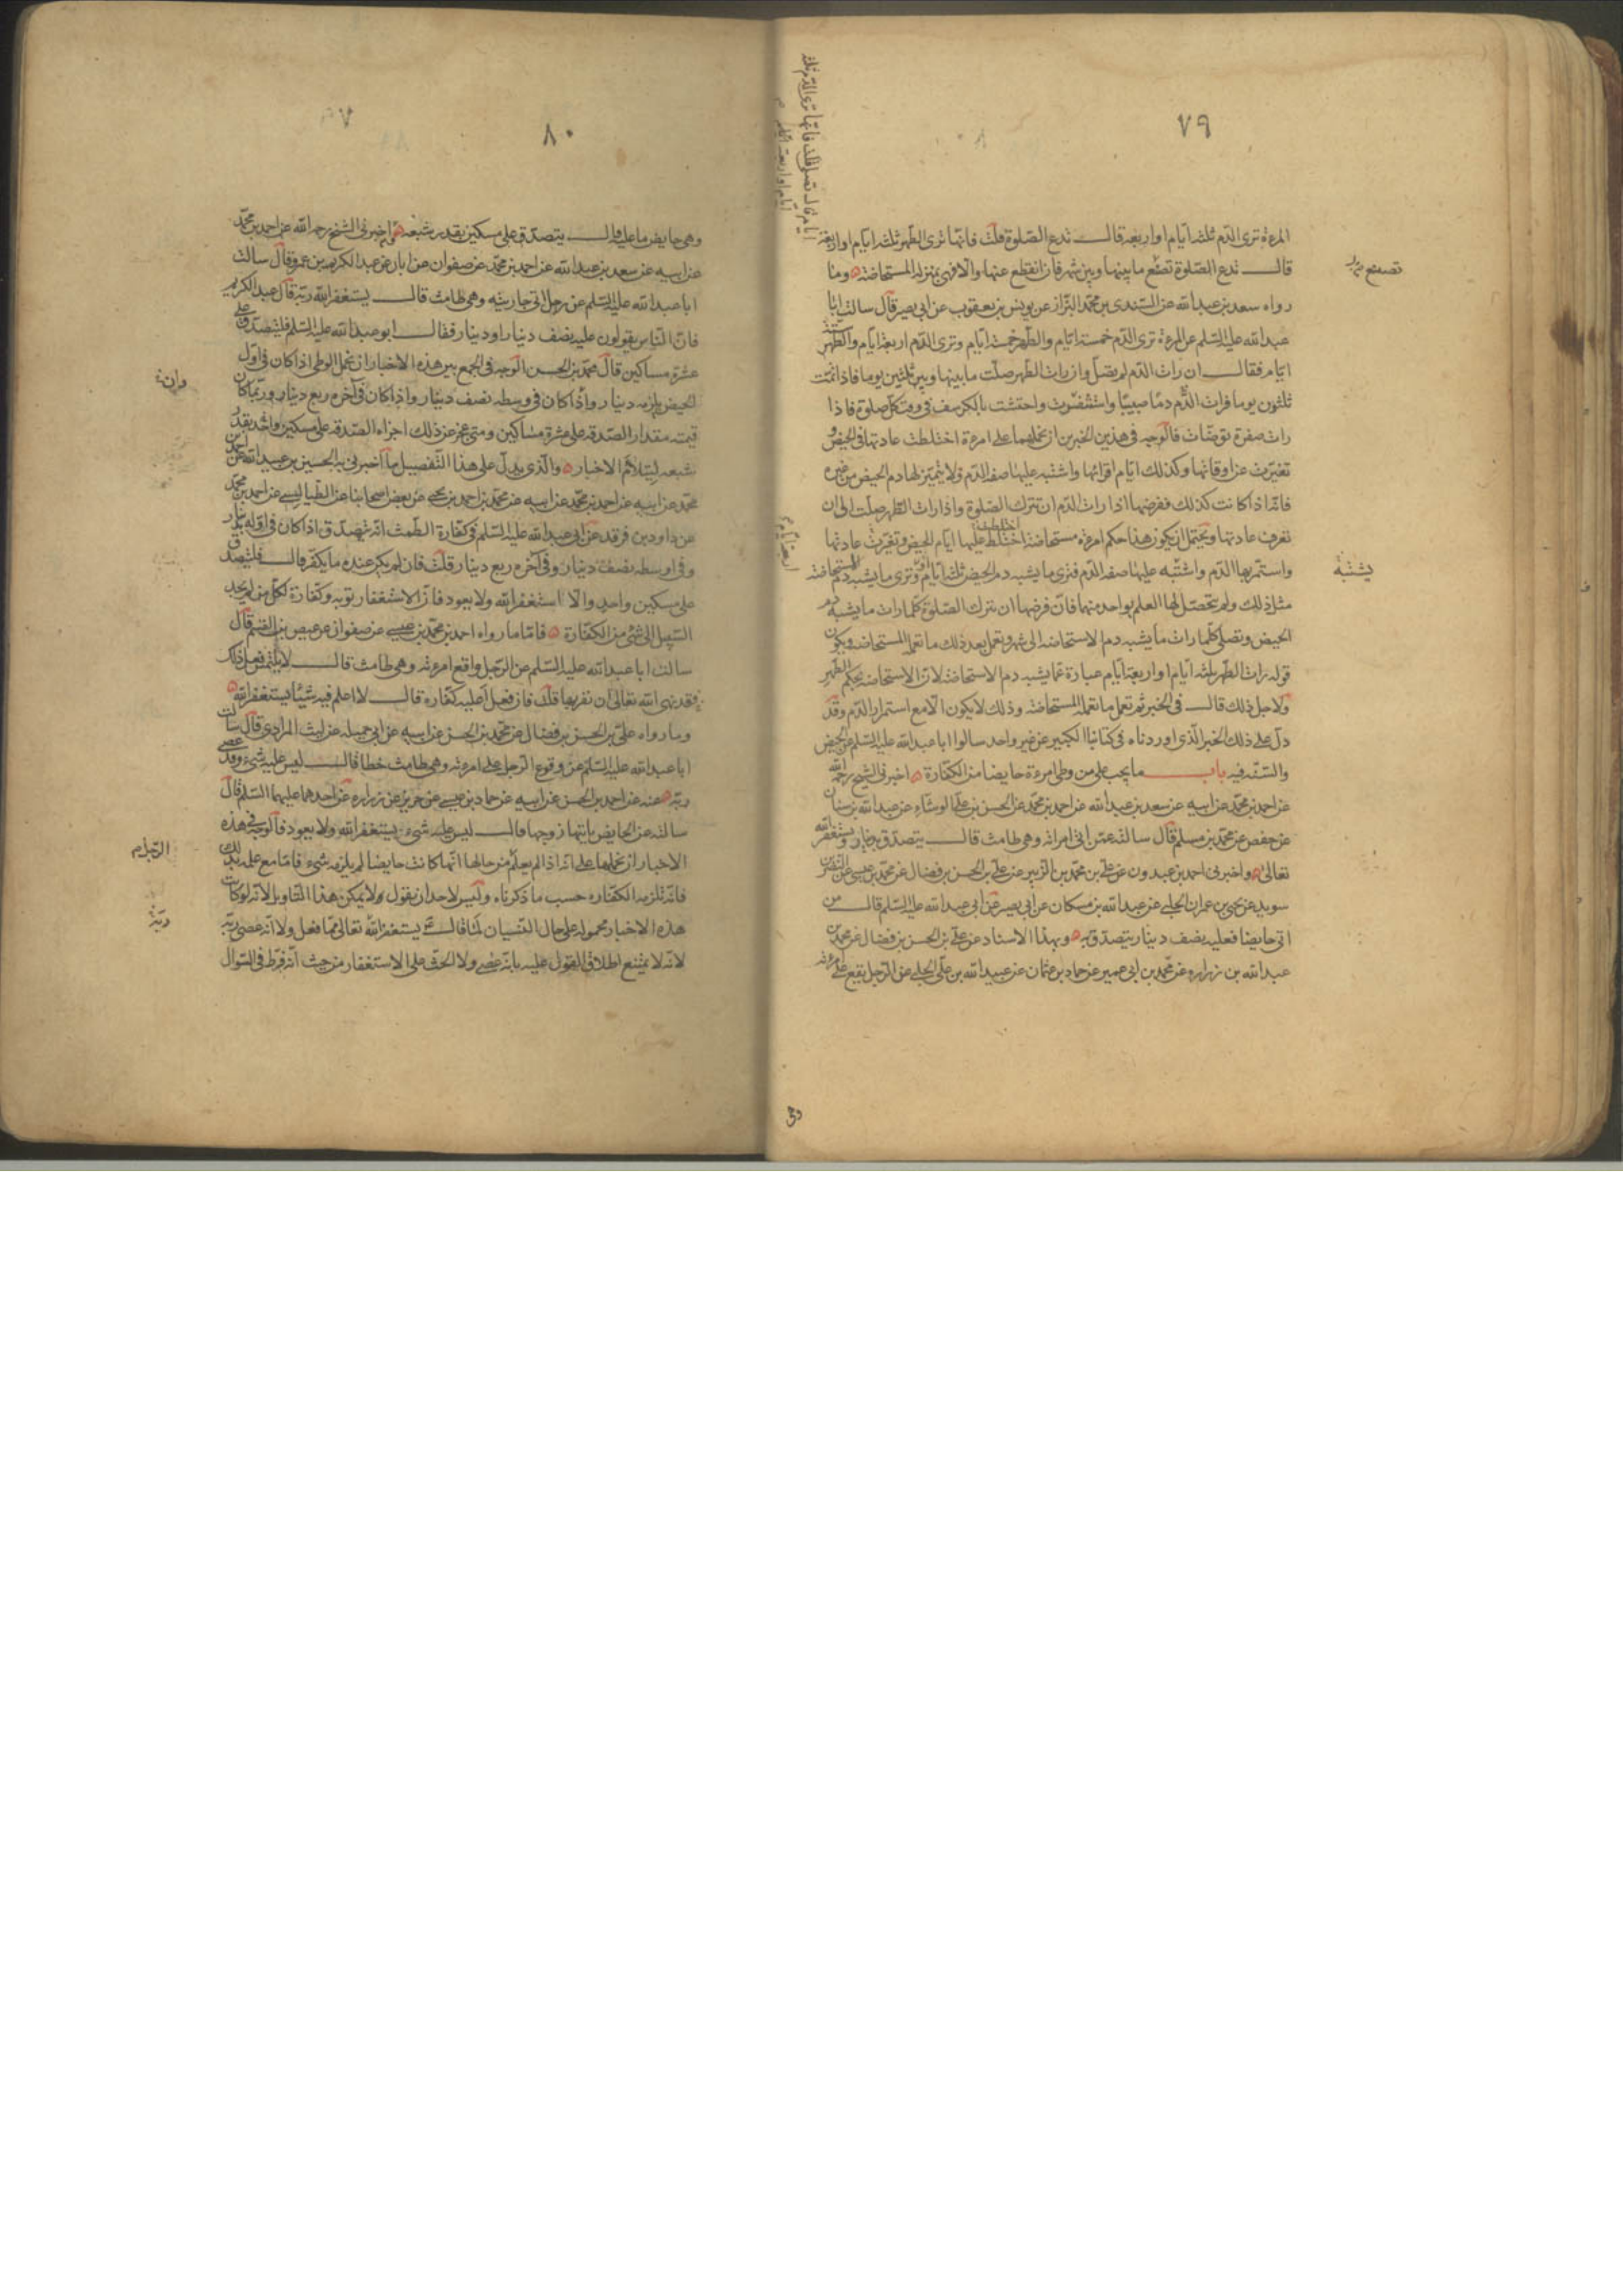 ٧٩
المرءة ترى الدّم ثلثة ايّام او اربعة قال تدع الصّلوة قلت فانّها ترى الطّهر ثلثة ايّام او اربعة
قال تدع الصّلوة تصنع ما بينها وبين شهر فان انقطع عنها والّا فهي بمنزلة المستحاضة ومنا
رواه سعد بن عبد الله عن السّندى بن محمّد البزّاز عن يونس بن يعقوب عن ابى بصير قال سالت ابا
عبد الله عليه السّلم عن المرءة ترى الدّم خمسة ايّام والطّهر خمسة ايّام وترى الدّم اربعة ايّام والطّهر ستّة
ايّام فقال ان رات الدّم لم تصلّ وان رات الطّهر صلّت ما بينها وبين ثلثين يوما فاذا تمّت
ثلثون يوما فرات الدّم دمًا صبيبًا واستثفرت واحتشت بالكرسف فى وقت كلّ صلوة فاذا
رات صفرة توضّات فالوجه فى هذين الخبرين ان نحملهما على امرءة اختلطت عادتها فى الحيض و
تغيّرت عن اوقاتها وكذلك ايّام اقرائها واشتبه عليها صفة الدّم ولا يتميّز لها دم الحيض من غيره
فانّه اذا كانت كذلك ففرضها اذا رات الدّم ان تترك الصّلوة واذا رات الطّهر صلّت الى ان
تعرف عادتها ويحتمل ان يكون هذا حكم امرءة مستحاضة اختلط عليها ايّام الحيض وتغيّرت عادتها
واستمرّ بها الدّم واشتبه عليها صفة الدّم فترى ما يشبه دم الحيض ثلثة ايّام وترى ما يشبه دم المستحاضة
مثل ذلك ولم يتحصّل لها العلم بواحد منهما فانّ فرضها ان تترك الصّلوة كلّما رات ما يشبه دم
الحيض وتصلّى كلّما رات ما يشبه دم الاستحاضة الى شهر وتعمل بعد ذلك ما تعمله المستحاضه ويكون
قوله رات الطّهر ثلثة ايّام او اربعة ايّام عبارة عمّا يشبه دم الاستحاضة لانّ الاستحاضه بحكم الطّهر
ولاجل ذلك قال فى الخبر ثم تعمل ما تعمله المستحاضة وذلك لا يكون الّا مع استمرار الدّم وقد
دلّ على ذلك الخبر الّذى اوردناه فى كتابنا الكبير عن غير واحد سالوا ابا عبد الله عليه السّلم عن الحيض
والسّنّة فيه باب ما يجب على من وطى امرءة حايضا من الكفّارة اخبرنى الشّيخ رحمه الله
عن احمد بن محمّد عن ابيه عن سعد بن عبد الله عن احمد بن محمّد عن الحسن بن علىّ الوشّاء عن عبد الله بن سنان
عن حفص عن محمّد بن مسلم قال سالته عمّن اتى امراته وهى طامث قال يتصدّق بدينار ويستغفر الله
تعالى واخبرنى احمد بن عبدون عن علىّ بن محمّد بن الزّبير عن علىّ بن الحسن بن فضال عن محمّد بن عيسى عن النّضر بن
سويد عن يحيى بن عمران الحلبى عن عبد الله بن مسكان عن ابى بصير عن ابى عبد الله عليه السّلم قال من
اتى حايضا فعليه نصف دينار يتصدّق به وبهذا الاسناد عن علىّ بن الحسن بن فضال عن محمّد بن
عبد الله بن زراره عن محمّد بن ابى عمير عن حماد بن عثمان عن عبيد الله بن علىّ الحلبى عن الرّجل يقع على امرءته
تصنع
يشتبه
ايّام قال تصلّى قلت فانّها ترى الدّم ثلثة
ايّام او اربعة ايّام
وهى
٨٠
وهى حايض ما عليه قال يتصدّق على مسكين بقدر شبعه واخبرنى الشيخ رحمه الله عن احمد بن محمّد
عن ابيه عن سعد بن عبد الله عن احمد بن محمّد عن صفوان عن ابان عن عبد الكريم بن عمرو قال سالت
ابا عبد الله عليه السّلم عن رجل اتى جاريته وهى طامث قال يستغفر الله ربّه قال عبد الكريم
فانّ النّاس يقولون عليه نصف دينار او دينار فقال ابو عبد الله عليه السّلم فليتصدّق على
عشرة مساكين قال محمّد بن الحسن الوجه فى الجمع بين هذه الاخبار ان نحمل الوطى اذا كان فى اوّل
الحيض يلزمه دينار واذا كان فى وسطه نصف دينار واذا كان فى آخره ربع دينار وربّما كان
قيمته مقدار الصّدقه على عشرة مساكين ومتى عجز عن ذلك اجزاه الصّدقه على مسكين واحد بقدر
شبعه لتتلائم الاخبار والّذى يدلّ على هذا التّفصيل ما اخبرنى به الحسين بن عبيد الله عن احمد بن
محمّد عن ابيه عن احمد بن محمّد عن ابيه عن محمّد بن احمد بن يحيى عن بعض اصحابنا عن الطّيالسى عن احمد بن محمّد
عن داود بن فرقد عن ابى عبد الله عليه السّلم فى كفّارة الطّمث انّه يتصدّق اذا كان فى اوّله بدينار
وفى اوسطه نصف دينار وفى آخره ربع دينار قلت فان لم يكن عنده ما يكفّر قال فليتصدّق
على مسكين واحد والّا استغفر الله ولا يعود فانّ الاستغفار توبه وكفّارة لكلّ من لم يجد
السّبيل الى شئ من الكفّارة فامّا ما رواه احمد بن محمّد بن عيسى عن صفوان عن عيص بن القسم قال
سالت ابا عبد الله عليه السّلم عن الرّجل واقع امرءته وهى طامث قال لا يلتمس فعل ذلك
فقد نهى الله تعالى ان نقربها قلت فان فعل اعليه كفّاره قال لا اعلم فيه شيئا يستغفر الله
وما رواه علىّ بن الحسن بن فضال عن محمّد بن الحسن عن ابيه عن ابى جميله عن ليث المرادى قال سالت
ابا عبد الله عليه السّلم عن وقوع الرّجل على امرءته وهى طامث خطأ قال ليس عليه شىء وقد عصى
ربّه عنه عن احمد بن الحسن عن ابيه عن حماد بن عيسى عن حريز عن زراره عن احدهما عليهما السّلم قال
سالته عن الحايض ياتيها زوجها قال ليس عليه شىء يستغفر الله ولا يعود فالوجه فى هذه
الاخبار ان نحملها على انّه اذا لم يعلم من حالها انّها كانت حايضا لم يلزمه شىء فامّا مع علمه بذلك
فانّه تلزمه الكفّاره حسب ما ذكرناه وليس لاحد ان يقول لا يمكن هذا التّاويل لانّه لو كانت
هذه الاخبار محمولة على حال النّسيان لما قال يستغفر الله تعالى ممّا فعل ولا انّه عصى ربّه
لانّه لا يمتنع اطلاق القول عليه بانّه عصى ولا الحثّ على الاستغفار من حيث انّه فرّط فى السّوال
وان